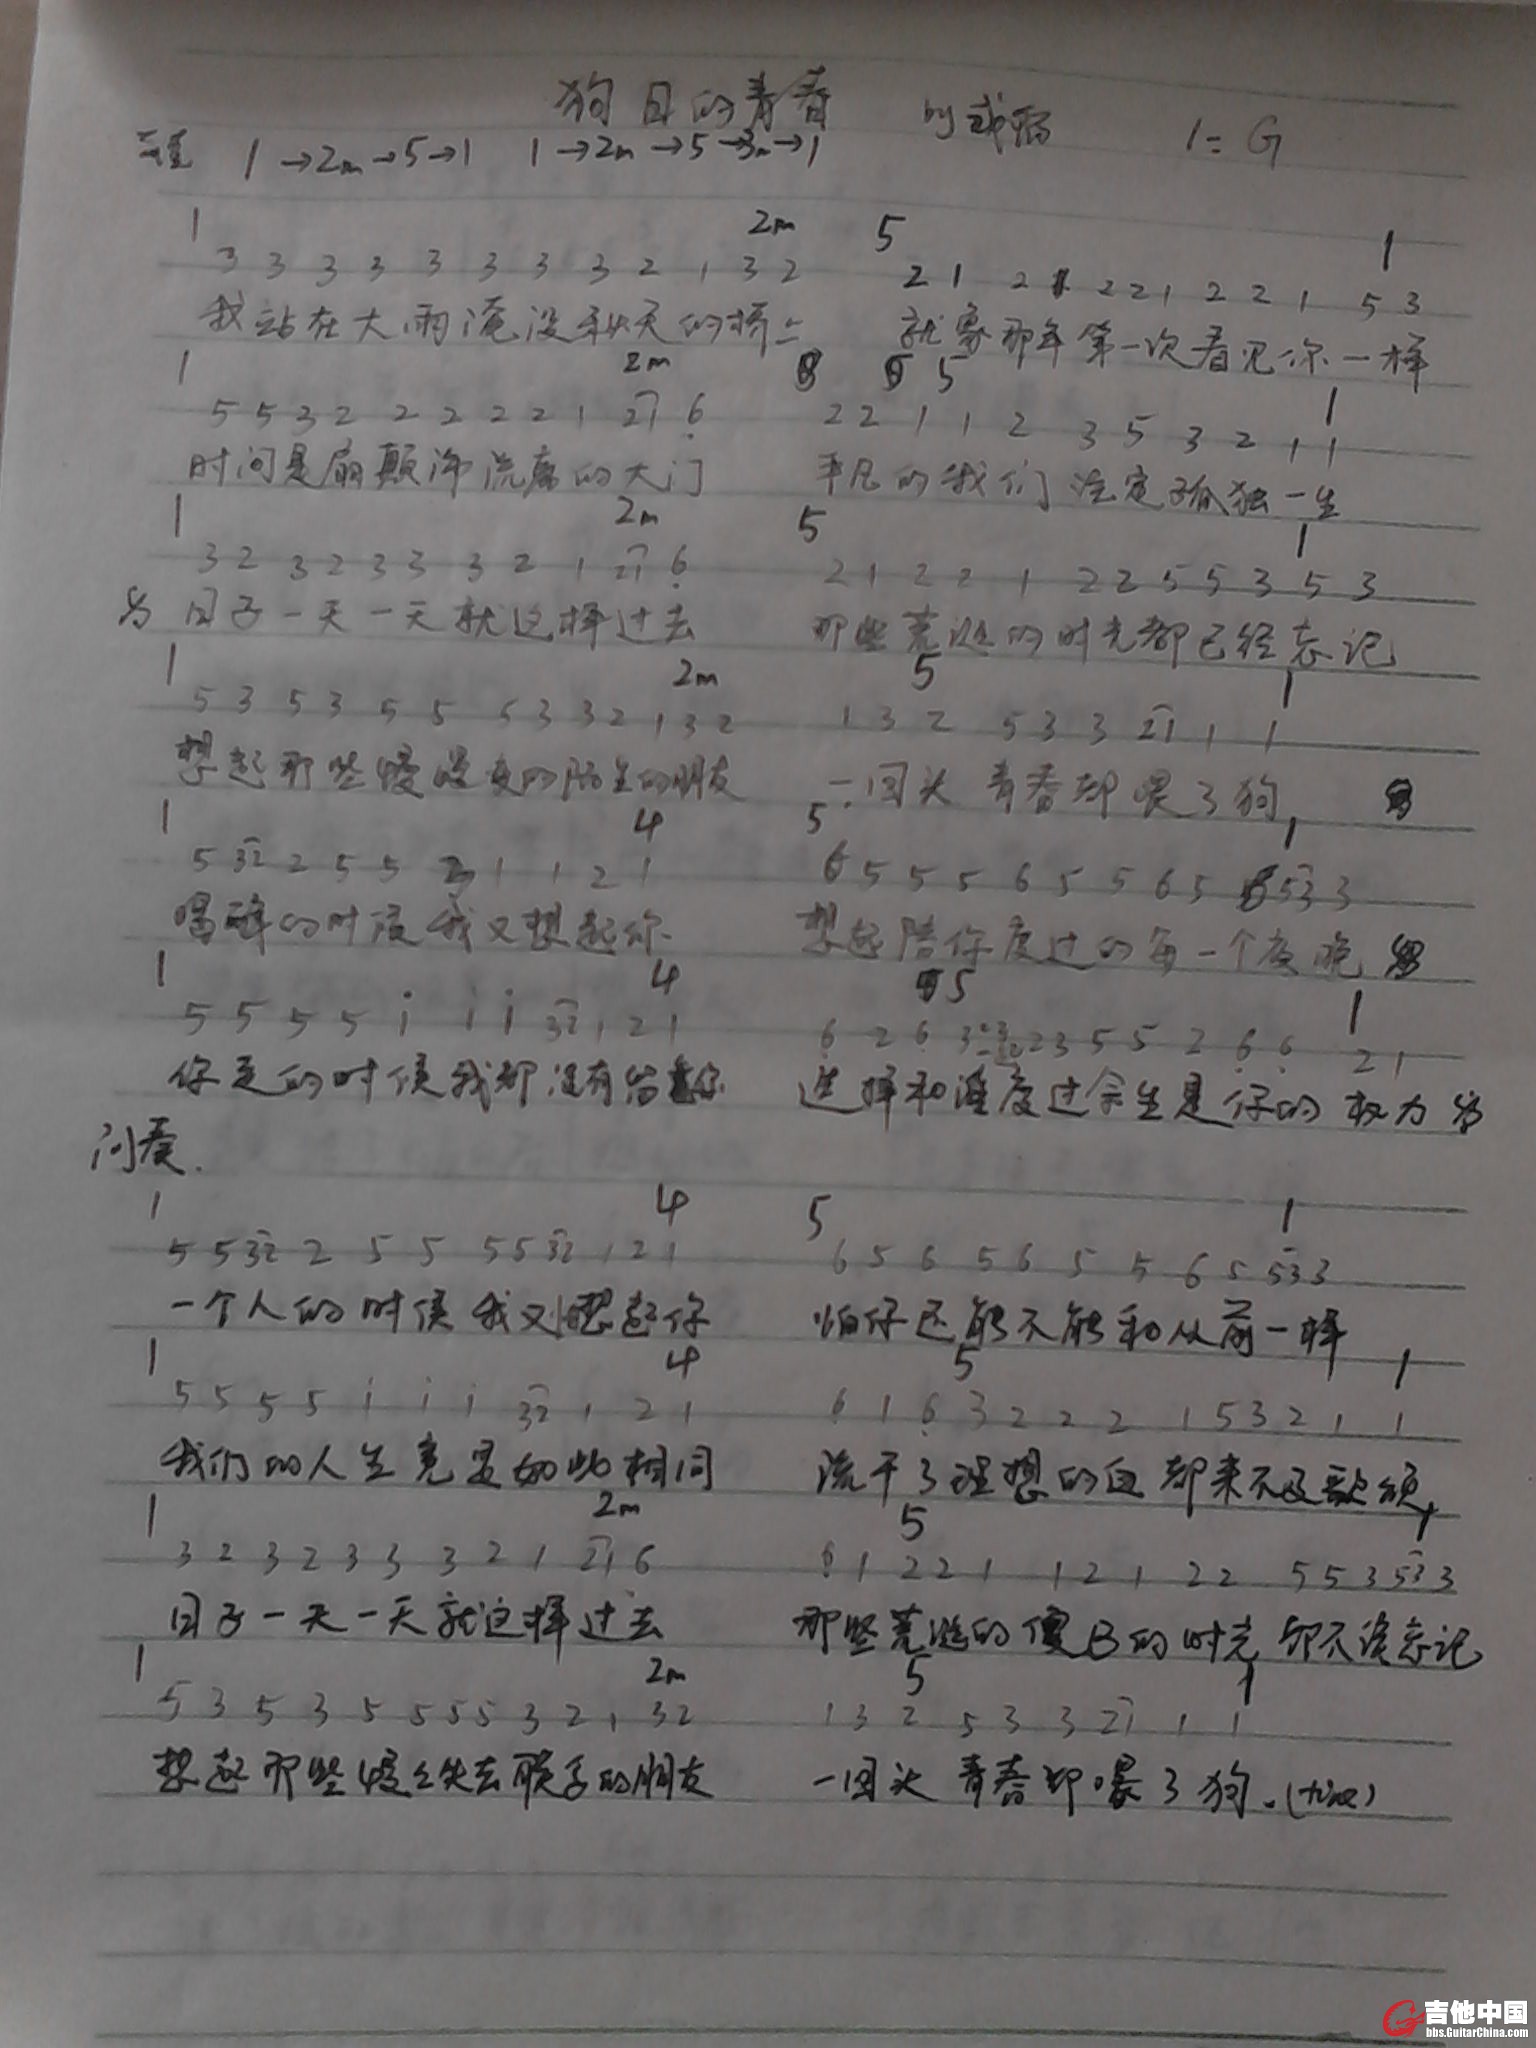 狗日的青春 by 戒病 1=G
1→2m→5→1 1→2m→5→3m→1
1 2m 5 1
3 3 3 3 3 3 3 3 2 1 3 2 2 1 2 1 2 2 1 2 2 1 5 3
我站在大雨淹没秋天的桥上 就象那年第一次看见你一样
1 2m 5 1
5 5 3 2 2 2 2 2 1 21 6 2 2 1 1 2 3 5 3 2 1 1
时间是扇颠沛流离的大门 平凡的我们注定孤独一生
1 2m 5 1
3 2 3 2 3 3 3 2 1 21 6 2 1 2 2 1 2 2 5 5 3 5 3
日子一天一天就这样过去 那些荒诞的时光都已经忘记
1 2m 5 1
5 3 5 3 5 5 5 3 3 2 1 3 2 1 3 2 5 3 3 21 1 1
想起那些慢慢变的陌生的朋友 一回头 青春却喂了狗
1 4 5 1
5 32 2 5 5 2 1 1 2 1 6 5 5 5 6 5 5 6 5 53 3
喝醉的时候我又想起你 想起陪你度过的每一个夜晚
1 4 5 1
5 5 5 5 i i i 32 1 2 1 6 2 6 3 2 3 5 5 2 6 6 2 1
你走的时候我却没有留你 选择和谁度过余生是你的权力
间奏.
1 4 5 1
5 5 32 2 5 5 5 5 32 1 2 1 6 5 6 5 6 5 5 6 5 53 3
一个人的时候我又想起你 怕你还能不能和从前一样
1 4 5 1
5 5 5 5 i i i 32 1 2 1 6 1 6 3 2 2 2 1 5 3 2 1 1
我们的人生竟是如此相同 流干了理想的血却来不及歌颂
1 2m 5 1
3 2 3 2 3 3 3 2 1 21 6 6 1 2 2 1 1 2 1 2 2 5 5 3 53 3
日子一天一天就这样过去 那些荒诞的傻B的时光却不该忘记
1 2m 5 1
5 3 5 3 5 5 5 5 3 2 1 3 2 1 3 2 5 3 3 21 1 1
想起那些慢慢失去联系的朋友 一回头 青春却喂了狗.(fine)
吉他中国
bbs.GuitarChina.com